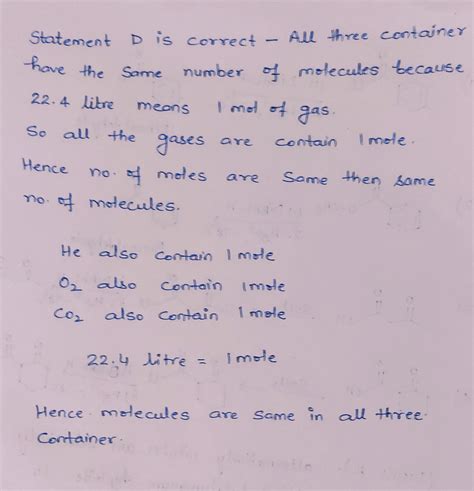 Statement D is correct - All three container
have the same number of molecules because
22.4 litre means 1 mol of gas.
So all the gases are contain 1 mole.
Hence no. of moles are same then same
no. of molecules.
He also contain 1 mole
O2 also contain 1 mole
CO2 also contain 1 mole
22.4 litre = 1 mole
Hence molecules are same in all three
Container.